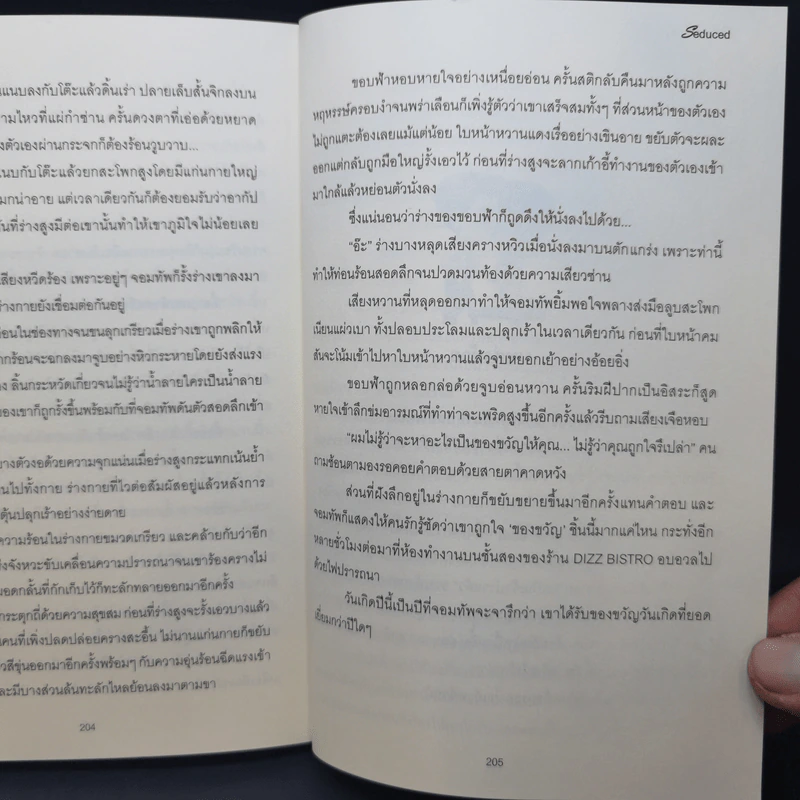 แนบลงกับโต๊ะแล้วดิ้นเร่า ปลายเล็บสั้นจิกลงบน
ามไหวที่แผ่กำซ่าน ครั้นดวงตาที่เอ่อด้วยหยาด
งตัวเองผ่านกระจกก็ต้องร้อนวูบวาบ...
นบกับโต๊ะแล้วยกสะโพกสูงโดยมีแก่นกายใหญ่
มกน่าอาย แต่เวลาเดียวกันก็ต้องยอมรับว่าอากัป
ันที่ร่างสูงมีต่อเขานั้นทำให้เขาภูมิใจไม่น้อยเลย
สียงหวีดร้อง เพราะอยู่ๆ จอมทัพก็รั้งร่างเขาลงมา
ร่างกายยังเชื่อมต่อกันอยู่
อนในช่องทางจนขนลุกเกรียวเมื่อร่างเขาถูกพลิกให้
ากร้อนจะฉกลงมาจูบอย่างหิวกระหายโดยยังส่งแรง
ง ลิ้นกระหวัดเกี่ยวจนไม่รู้ว่าน้ำลายใครเป็นน้ำลาย
องเขาก็ถูกรั้งขึ้นพร้อมกับที่จอมทัพดันตัวสอดลึกเข้า
บางตัวงอด้วยความจุกแน่นเมื่อร่างสูงกระแทกเน้นย้ำ
นไปทั้งกาย ร่างกายที่ไวต่อสัมผัสอยู่แล้วหลังการ
ตุ้นปลุกเร้าอย่างง่ายดาย
ความร้อนในร่างกายขมวดเกรียว และคล้ายกับว่าอีก
่งจังหวะขับเคลื่อนความปรารถนาจนเขาร้องครางไม่
อดกลั้นที่กักเก็บไว้ก็ทะลักทลายออกมาอีกครั้ง
กระตุกถี่ด้วยความสุขสม ก่อนที่ร่างสูงจะรั้งเอวบางแล้ว
คนที่เพิ่งปลดปล่อยครางสะอื้น ไม่นานแก่นกายก็ขยับ
วสีขุ่นออกมาอีกครั้งพร้อมๆ กับความอุ่นร้อนฉีดแรงเข้า
ละมีบางส่วนล้นทะลักไหลย้อนลงมาตามขา
204
Seduced
ขอบฟ้าหอบหายใจอย่างเหนื่อยอ่อน ครั้นสติกลับคืนมาหลังถูกความ
หฤหรรษ์ครอบงำจนพร่าเลือนก็เพิ่งรู้ตัวว่าเขาเสร็จสมทั้งๆ ที่ส่วนหน้าของตัวเอง
ไม่ถูกแตะต้องเลยแม้แต่น้อย ใบหน้าหวานแดงเรื่ออย่างเขินอาย ขยับตัวจะผละ
ออกแต่กลับถูกมือใหญ่รั้งเอวไว้ ก่อนที่ร่างสูงจะลากเก้าอี้ทำงานของตัวเองเข้า
มาใกล้แล้วหย่อนตัวนั่งลง
ซึ่งแน่นอนว่าร่างของขอบฟ้าก็ถูกดึงให้นั่งลงไปด้วย...
“อ๊ะ” ร่างบางหลุดเสียงครางหวิวเมื่อนั่งลงมาบนตักแกร่ง เพราะท่านี้
ทำให้ท่อนร้อนสอดลึกจนปวดมวนท้องด้วยความเสียวซ่าน
เสียงหวานที่หลุดออกมาทำให้จอมทัพยิ้มพอใจพลางส่งมือลูบสะโพก
เนียนแผ่วเบา ทั้งปลอบประโลมและปลุกเร้าในเวลาเดียวกัน ก่อนที่ใบหน้าคม
สันจะโน้มเข้าไปหาใบหน้าหวานแล้วจูบหยอกเย้าอย่างอ้อยอิ่ง
ขอบฟ้าถูกหลอกล่อด้วยจูบอ่อนหวาน ครั้นริมฝีปากเป็นอิสระก็สูด
หายใจเข้าลึกข่มอารมณ์ที่ทำท่าจะเพริดสูงขึ้นอีกครั้งแล้วรีบถามเสียงเจือหอบ
“ผมไม่รู้ว่าจะหาอะไรเป็นของขวัญให้คุณ... ไม่รู้ว่าคุณถูกใจรึเปล่า” คน
ถามช้อนตามองรอคอยคำตอบด้วยสายตาคาดหวัง
ส่วนที่ฝังลึกอยู่ในร่างกายก็ขยับขยายขึ้นมาอีกครั้งแทนคำตอบ และ
จอมทัพก็แสดงให้คนรักรู้ชัดว่าเขาถูกใจ ‘ของขวัญ’ ชิ้นนี้มากแค่ไหน กระทั่งอีก
หลายชั่วโมงต่อมาที่ห้องทำงานบนชั้นสองของร้าน DIZZ BISTRO อบอวลไป
ด้วยไฟปรารถนา
วันเกิดปีนี้เป็นปีที่จอมทัพจะจารึกว่า เขาได้รับของขวัญวันเกิดที่ยอด
เยี่ยมกว่าปีใดๆ
205